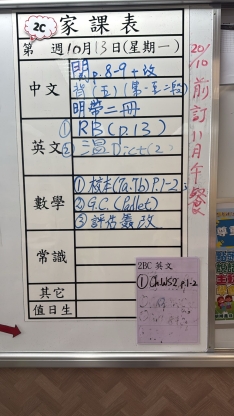 2C 家課表
第 週10月13日(星期一)
中文
閱p.8-9+改
背(五)(第一至二段)
明帶二冊
英文
① RB(p.13)
② 溫Dict(2)
數學
① 校本(7a.7b)P.1-2
② G.C.(Padlet)
③ 評估簽改
常識
其它
值日生
20/10前訂11月午餐
2BC 英文
① Ch WS2 p.1-2